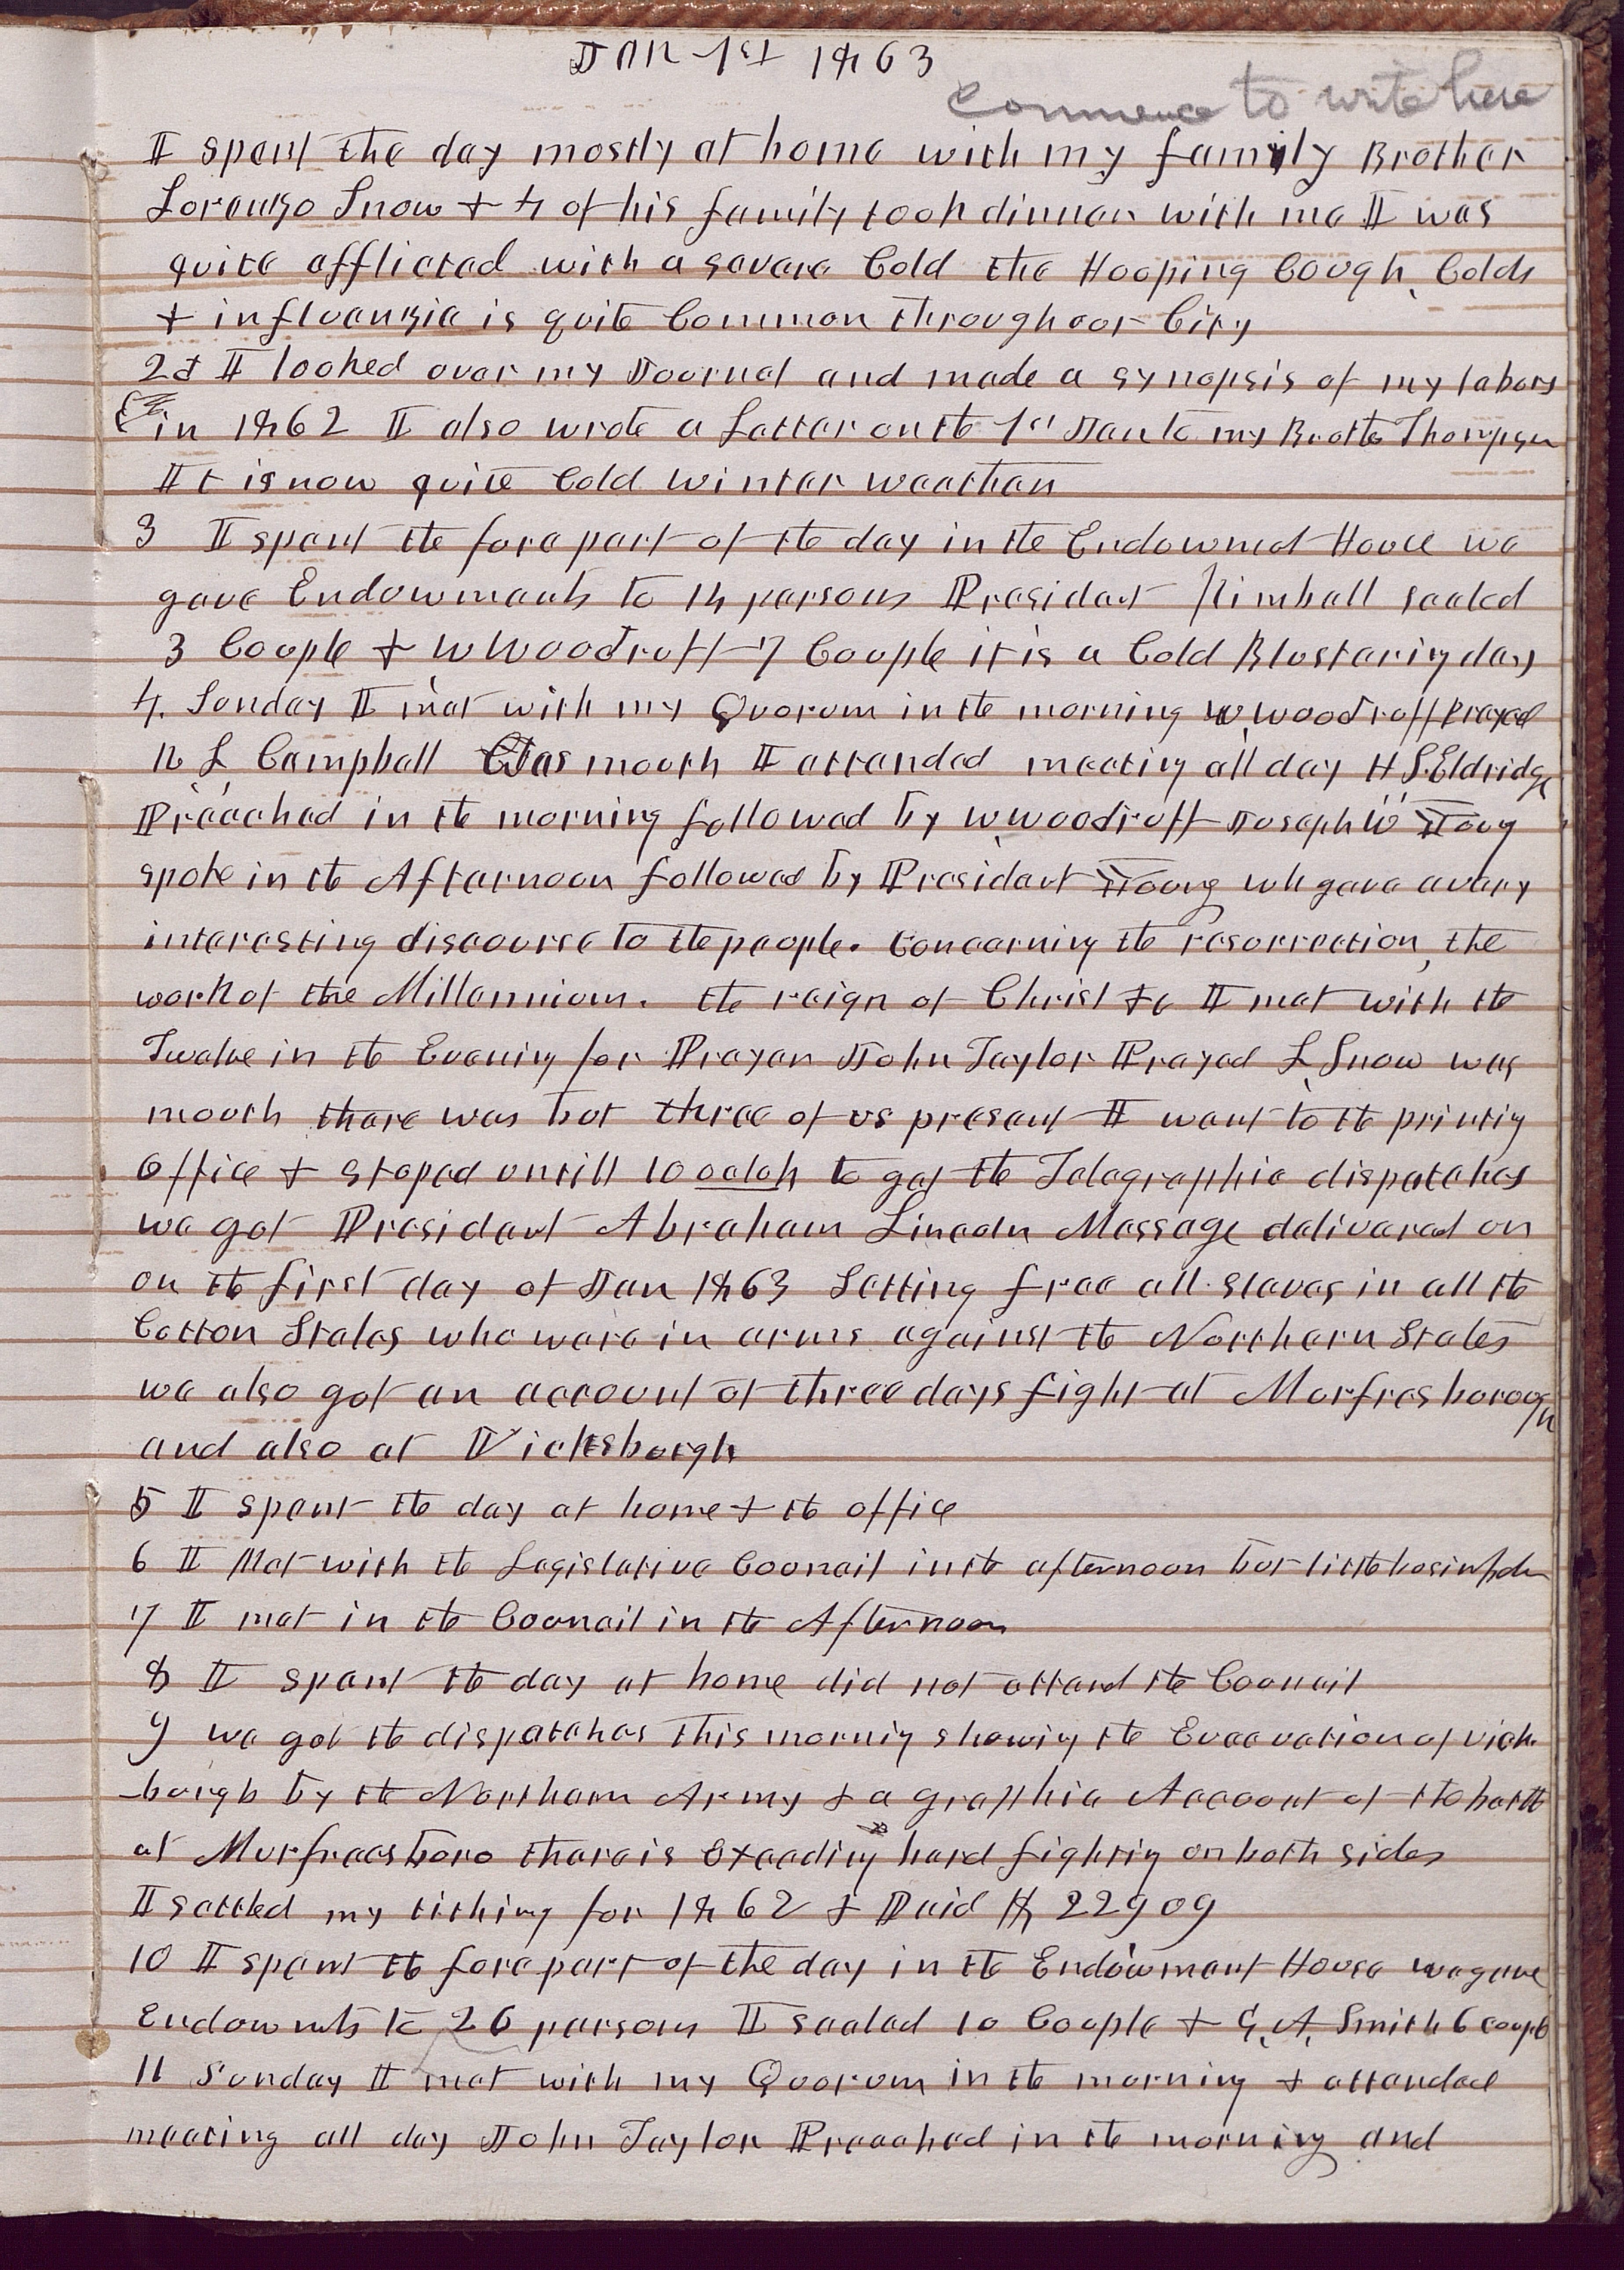 JAN 1st 1863
Commence to write here
I spent the day mostly at home with my family Brother
Lorenzo Snow & 4 of his family took dinner with me I was
quite afflicted with a severe Cold the Hooping Cough, Colds
& influenzia is quite Common throughout our City
2d I looked over my Journal and made a synopsis of my labors
in 1862 I also wrote a Letter on the 1st Jan to my Brother Thompson
It is now quite Cold winter weather
3 I spent the fore part of the day in the Endowmet House we
gave Endowments to 14 persons President Kimball sealed
3 Couple & W Woodruff 7 Couple it is a Cold Blustering day
4. Sunday I met with my Quorum in the morning W Woodruff Prayed
R L Campbell was mouth I attended meeting all day H S. Eldridge
Preached in the morning followed by W Woodruff Joseph W Young
spoke in the Afternoon followed by President Young who gave a very
interesting discourse to the people. Concerning the resurrection, the
work of the Millennium. the reign of Christ &c I met with the
Twelve in the Evening for Prayer John Taylor Prayed L Snow was
mouth there was but three of us present I went to the printing
Office & stoped untill 10 oclok to get the Telegraphic dispatches
we got President Abraham Lincoln Message delivered on
on the first day of Jan 1863 Setting free all slaves in all the
Cotton States who were in arms against the Northern States
we also got an account of three days fight at Murfresborough
and also at Vicksburgh
5 I spent the day at home & the office
6 I Met with the Legislative Council in the afternoon but little business
7 I met in the Council in the Afternoon
8 I spent the day at home did not attend the Council
9 we got the dispatches this morning showing the Evacuation of Vick
-burgh by the Northern Army & a graphic Account of the battle
at Murfreesboro there is exceeding hard fighting on both sides
I settled my tithing for 1862 & Paid $22909
10 I spent the fore part of the day in the Endowment House we gave
Endowmts to 26 persons I sealed 10 Couple & G. A. Smith 6 couple
11 Sunday I met with my Quorum in the morning & attended
meeting all day John Taylor Preached in the morning and